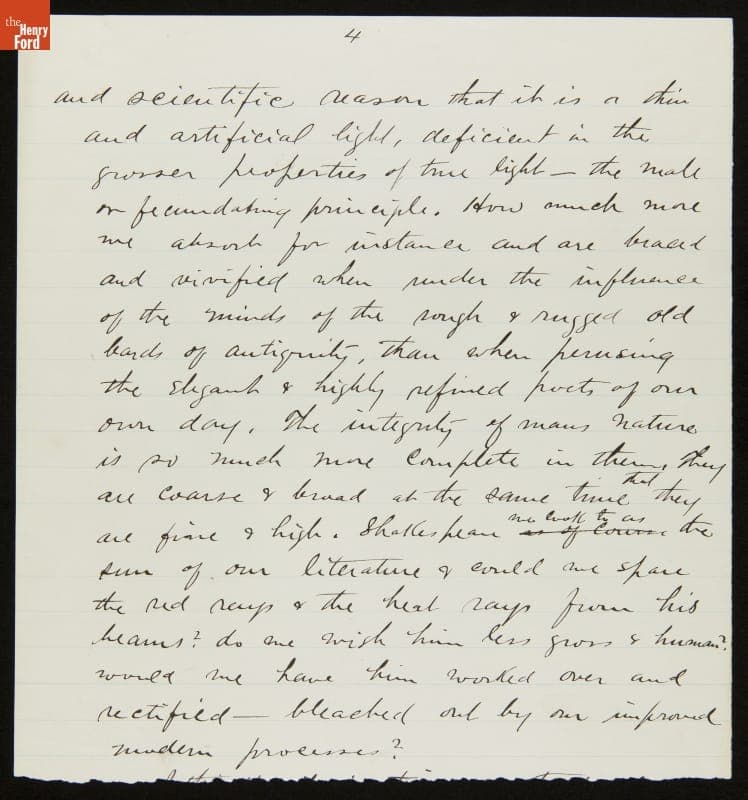 the
Henry
Ford
4
and scientific reason that it is a thin
and artificial light, deficient in the
grosser properties of true light — the male
or fecundating principle. How much more
we absorb for instance and are braced
and vivified when under the influence
of the minds of the rough & rugged old
bards of antiquity, than when perusing
the elegant & highly refined poets of our
own day. The integrity of mans nature
is so much more complete in them. They
that
are coarse & broad at the same time they
we look to as
are fine & high. Shakespear as of course the
sun of our literature & could we spare
the red rays & the heat rays from his
beams? do we wish him less gross & human?
would we have him worked over and
rectified — bleached out by our improved
modern processes?